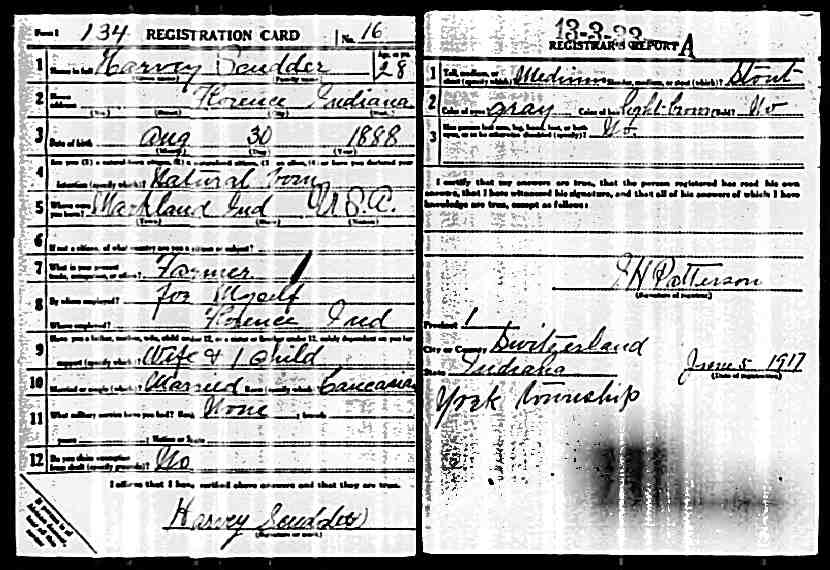 Form 1 134 REGISTRATION CARD No. 16
1 Name in full Harvey Scudder Age, in yrs. 28
(Given name) (Family name)
2 Home address Florence Indiana
(No.) (Street) (City) (State)
3 Date of birth Aug 30 1888
(Month) (Day) (Year)
Are you (1) a natural-born citizen, (2) a naturalized citizen, (3) an alien, (4) or have you declared your
4 intention (specify which)? Natural born
5 Where were you born? Markland Ind U.S.A.
(Town) (State) (Nation)
6 If not a citizen, of what country are you a citizen or subject?
7 What is your present trade, occupation, or office? Farmer
8 By whom employed? for Myself
Where employed? Florence Ind
Have you a father, mother, wife, child under 12, or a sister or brother under 12, solely dependent on you for
9 support (specify which)? Wife & 1 child
10 Married or single (which)? Married Race (specify which)? Caucasian
11 What military service have you had? Rank None ; branch
years ; Nation or State
12 Do you claim exemption from draft (specify grounds)? No
I affirm that I have verified above answers and that they are true.
Harvey Scudder
(Signature or mark)
13-3-22 A
REGISTRAR'S REPORT
1 Tall, medium, or short (specify which)? Medium Slender, medium, or stout (which)? Stout
2 Color of eyes? gray Color of hair? light-brown Bald? No
3 Has person lost arm, leg, hand, foot, or both eyes, or is he otherwise disabled (specify)? No
I certify that my answers are true, that the person registered has read his own
answers, that I have witnessed his signature, and that all of his answers of which I have
knowledge are true, except as follows:
J H Patterson
(Signature of registrar)
Precinct 1
City or County Switzerland
State Indiana June 5 1917
(Date of registration)
York township